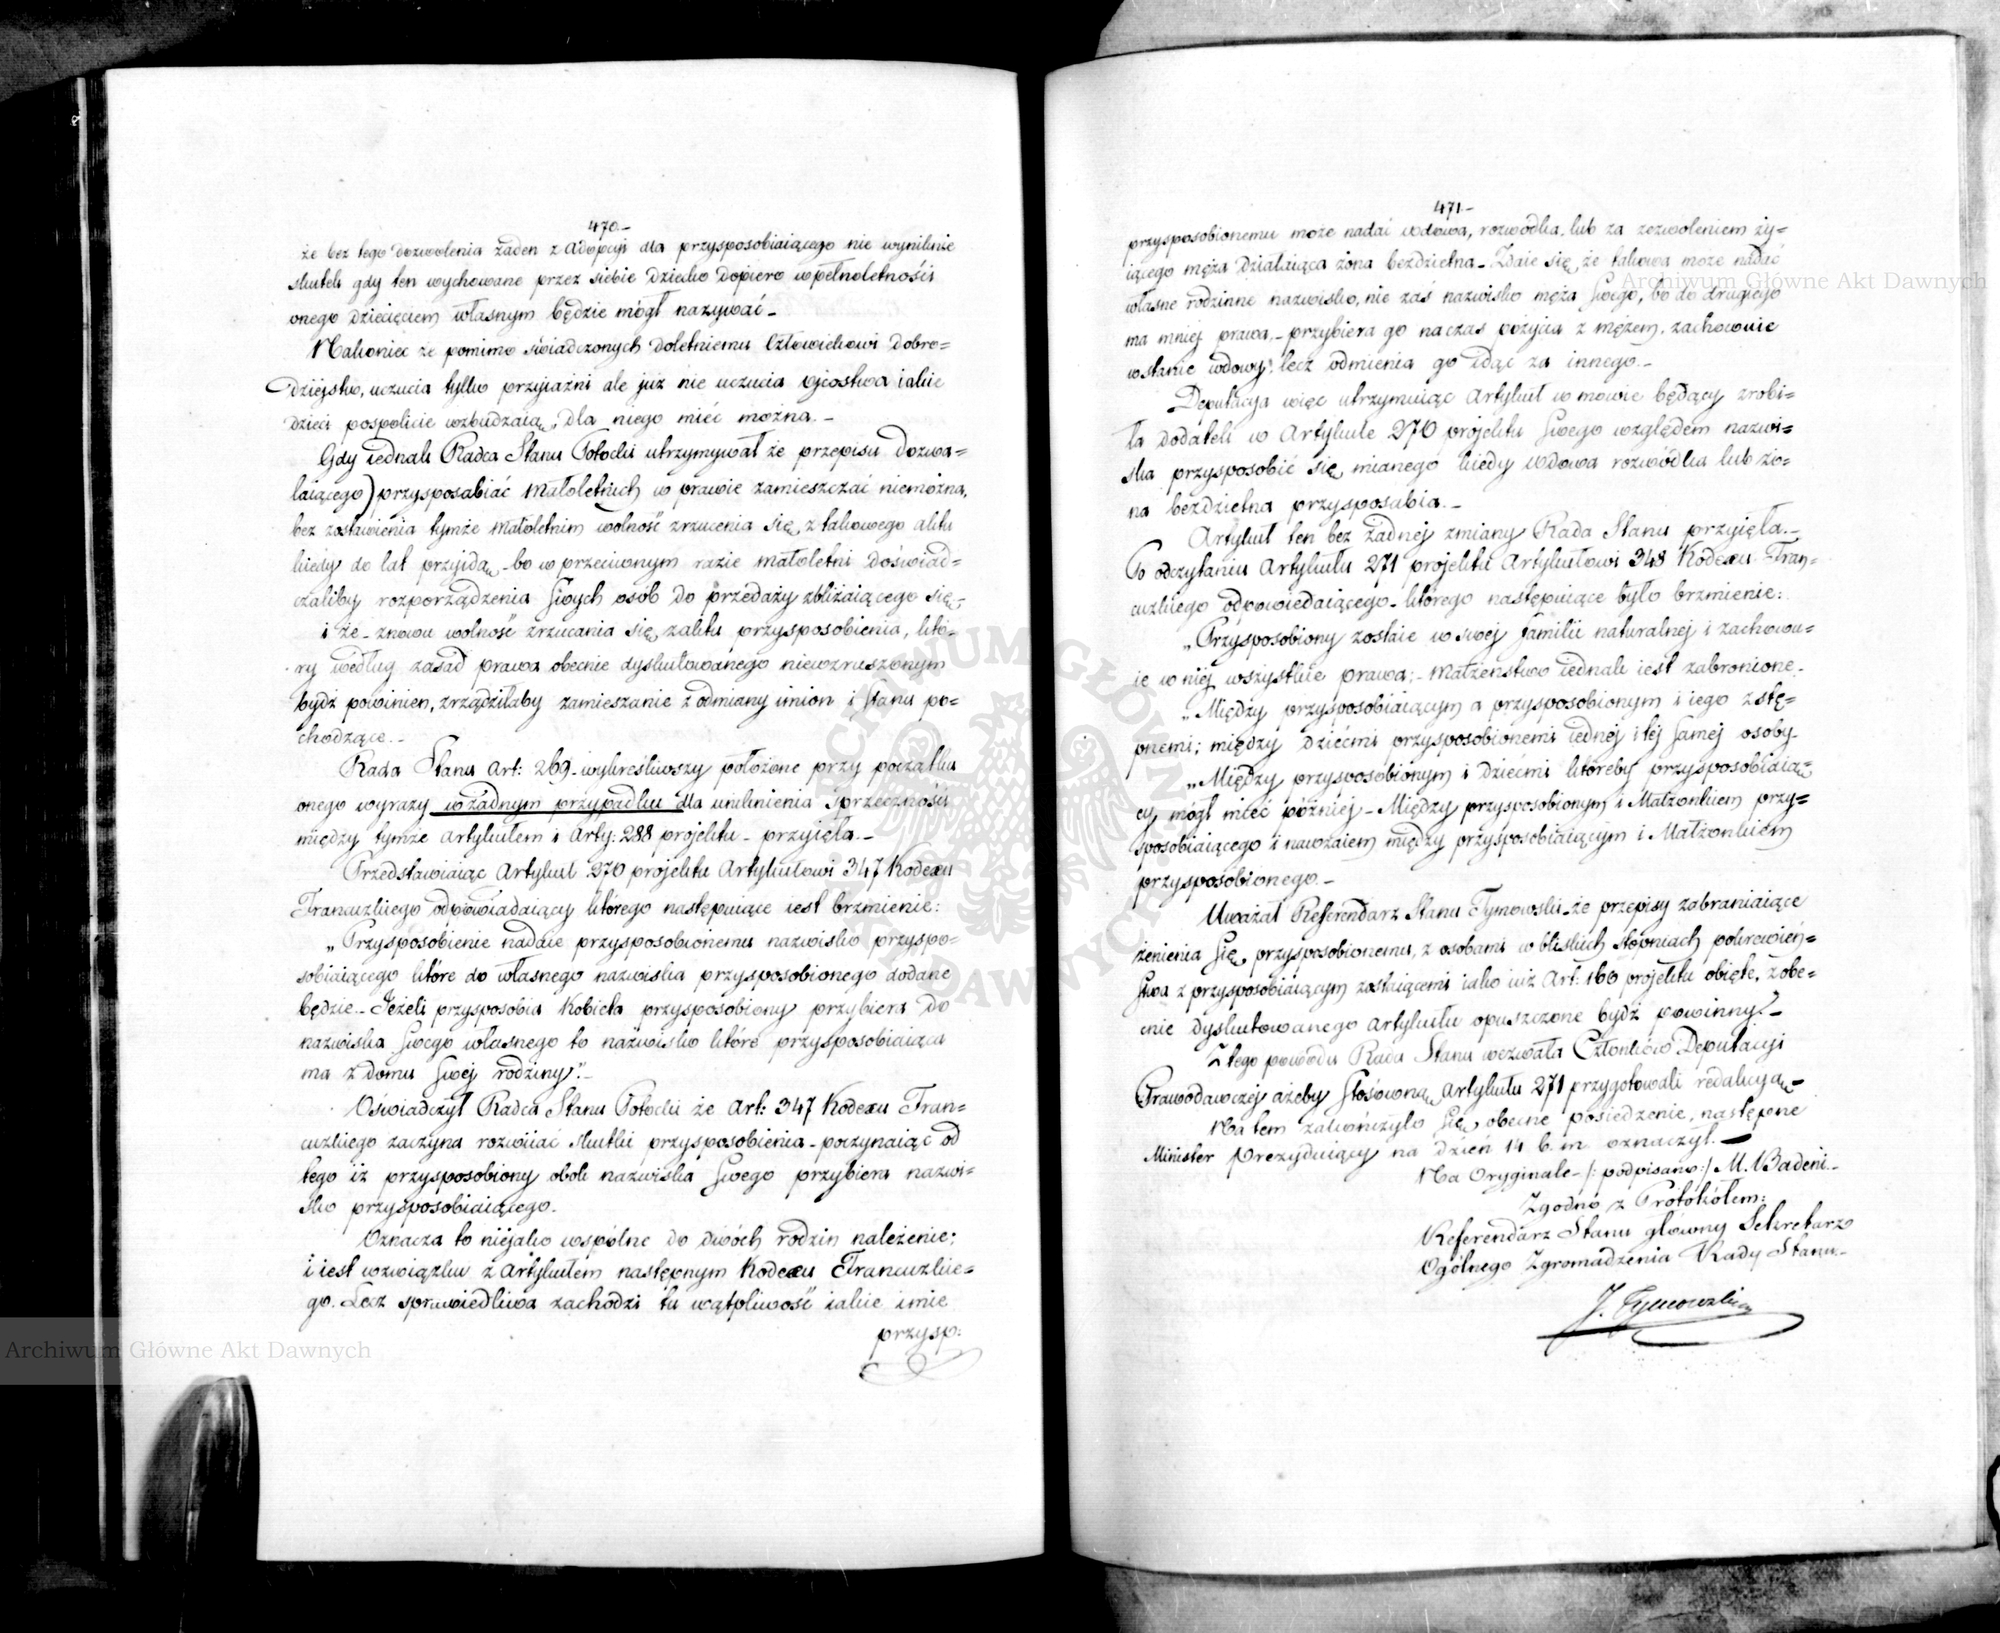 470.-
że bez tego dozwolenia żaden z adopcyi dla przysposobiaiącego nie wyniknie
skutek gdy ten wychowane przez siebie dziecko dopiero w pełnoletności
onego dziecięciem własnym będzie mógł nazywać _
Nakoniec że pomimo świadczonych doletniemu Człowiekowi dobro=
dziejstw, uczucia tylko przyiaźni ale już nie uczucia ojcostwa iakie
dzieci pospolicie wzbudzaią, dla niego mieć można. _
Gdy iednak Radca Stanu Potocki utrzymywał że przepisu dozwa=
laiącego przysposabiać małoletnich w prawie zamieszczać niemożna,
bez zostawienia tymże małoletnim wolność zrzucenia się z takowego aktu
kiedy do lat przyidą _ bo w przeciwnym razie małoletni doświad=
czaliby rozporządzenia swych osób do przedaży zbliżaiącego się,
i że _ znowu wolność zrzucania się zaktu przysposobienia, któ=
ry według zasad prawa obecnie dyskutowanego niewzruszonym
bydź powinien, zrządziłaby zamieszanie z odmiany imion i stanu po=
chodzące. _
Rada Stanu Art: 269 _ wykreśliwszy położone przy początku
onego wyrazy w żadnym przypadku dla uniknienia sprzeczności
między tymże artykułem i Arty: 288 projektu _ przyięła. _
Przedstawiaiąc Artykuł 270 projektu Artykułowi 347 Kodexu
Francuzkiego odpowiadaiący którego następuiące iest brzmienie:
„Przysposobienie nadaie przysposobionemu nazwisko przyspo=
sobiaiącego które do własnego nazwiska przysposobionego dodane
będzie _ Jeżeli przysposobia Kobieta przysposobiony przybiera do
nazwiska swego własnego to nazwisko które przysposobiaiąca
ma z domu swej rodziny". _
Oświadczył Radca Stanu Potocki że Art: 347 Kodexu Fran=
cuzkiego zaczyna rozwiiać skutki przysposobienia _ poczynaiąc od
tego iż przysposobiony obok nazwiska swego przybiera nazwi=
sko przysposobiaiącego.
Oznacza to niejako wspólne do dwóch rodzin należenie;
i iest wzwiązku z Artykułem następnym Kodexu Francuzkie=
go. Lecz sprawiedliwa zachodzi tu wątpliwość iakie imie
przysp:
471.-
przysposobionemu może nadać wdowa, rozwódka, lub za zezwoleniem ży=
iącego męża działaiąca żona bezdzietna _ Zdaie się, że takowa może nadać
własne rodzinne nazwisko, nie zaś nazwisko męża swego, bo do drugiego
ma mniej prawa, _ przybiera go na czas pożycia z mężem, zachowuie
w stanie wdowy, lecz odmienia go idąc za innego. _
Deputacja więc utrzymuiąc Artykuł w mowie będący zrobi=
ła dodatek w Artykule 270 projektu swego względem nazwi=
ska przysposobić się mianego kiedy wdowa rozwódka lub żo=
na bezdzietna przysposabia. _
Artykuł ten bez żadnej zmiany Rada Stanu przyięła. _
Po odczytaniu Artykułu 271 projektu Artykułowi 348 Kodexu Fran=
cuzkiego odpowiedaiącego _ którego następuiące było brzmienie:
„Przysposobiony zostaie w swej familii naturalnej i zachowu=
ie w niej wszystkie prawa; _ małżeństwo iednak iest zabronione _
„Między przysposobiaiącym a przysposobionym i iego zstę=
pnemi; między dziećmi przysposobionemi iednej i tej samej osoby
„Między przysposobionym i dziećmi któreby przysposobiaią=
cy mógł mieć później _ Między przysposobionym i Małżonkiem przy=
sposobiaiącego i nawzaiem między przysposobiaiącym i Małżonkiem
przysposobionego. _
Uważał Referendarz Stanu Tymowski _ że przepisy zabraniaiące
żenienia się przysposobionemu, z osobami w bliskich stopniach pokrewień=
stwa z przysposobiaiącym zostaiącemi iako iuż Art: 160 projektu obięte, z obe=
cnie dyskutowanego Artykułu opuszczone bydź powinny. _
Z tego powodu Rada Stanu wezwała Członków Deputacji
Prawodawczej ażeby stosowną Artykułu 271 przygotowali redakcyą _
Na tem zakończyło się obecne posiedzenie, następne
Minister Prezyduiący na dzień 14 b. m. oznaczył. _
Na Oryginale _ /: podpisano :/ M. Badeni _
Zgodno z Protokółem:
Referendarz Stanu główny Sekretarz
Ogólnego Zgromadzenia Rady Stanu. _
J. Tymowski
Archiwum Główne Akt Dawnych
Archiwum Główne Akt Dawnych
ARCHIWUM GŁÓWNE AKT DAWNYCH